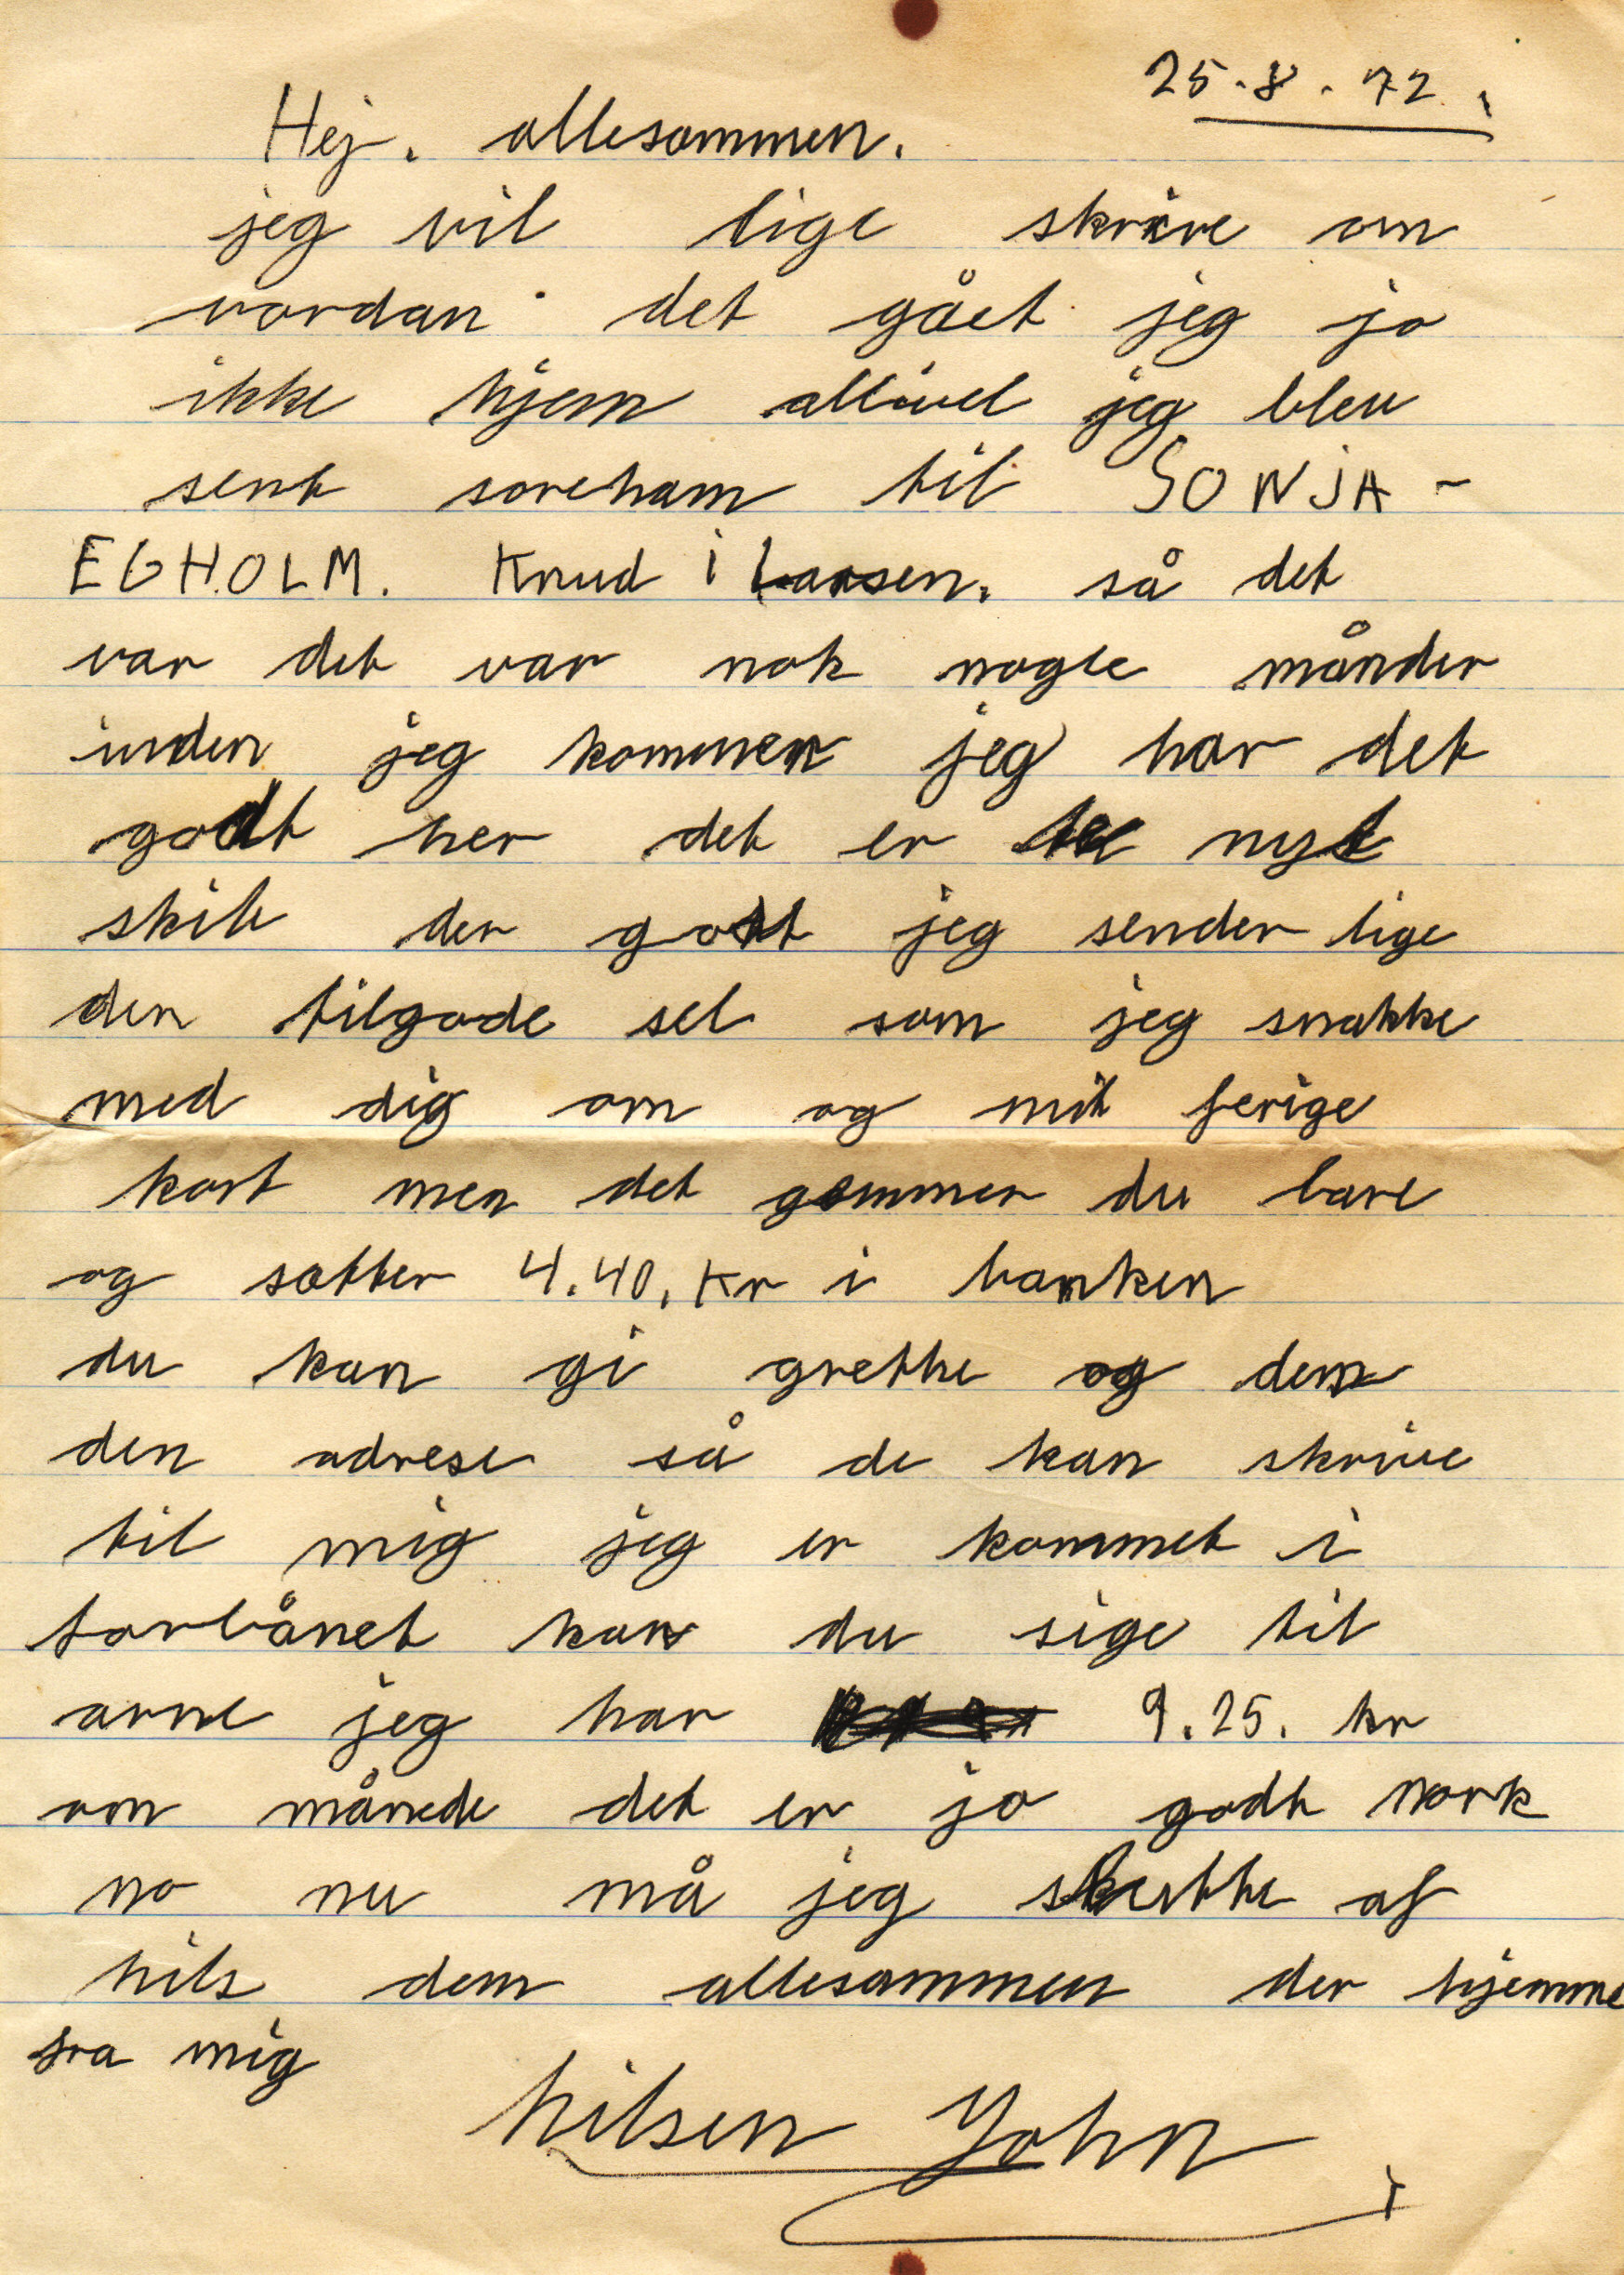 25.8.72.
Hej. allesammen.
jeg vil lige skrive om
vordan det gået jeg jo
ikke hjem allivel jeg blev
sent soreham til SONJA-
EGHOLM. Knud i Larsen. så det
var det var nok nogle månder
inden jeg kommer jeg har det
godt her det er nyt
skib der godt jeg sender lige
den tilgode sel som jeg snakke
med dig om og mit ferige
kort men det gemmer du bare
og sætter 4.40, Kr i banken
du kan gi grethe og dem
den adrese så de kan skrive
til mig jeg er kommet i
forbånet kan du sige til
arne jeg har 9.25. kr
om månede det er jo godt nork
no nu må jeg slutte af
hils dem allesammen der hjemme
fra mig
hilsen John